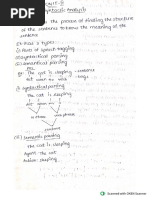 UNIT-3
Syntactic Analysis
is the process of finding the structure
of the sentence to know the meaning of the
sentence
It has 3 types:
(i) Parts of speech tagging
(ii) syntactical parsing
(iii) semantical parsing
The cat is sleeping → sentence
(ii) Syntactical parsing
The cat is sleeping
(iii) Semantic parsing
The cat is sleeping
Agent: the cat
Action: sleeping
Scanned with OKEN Scanner